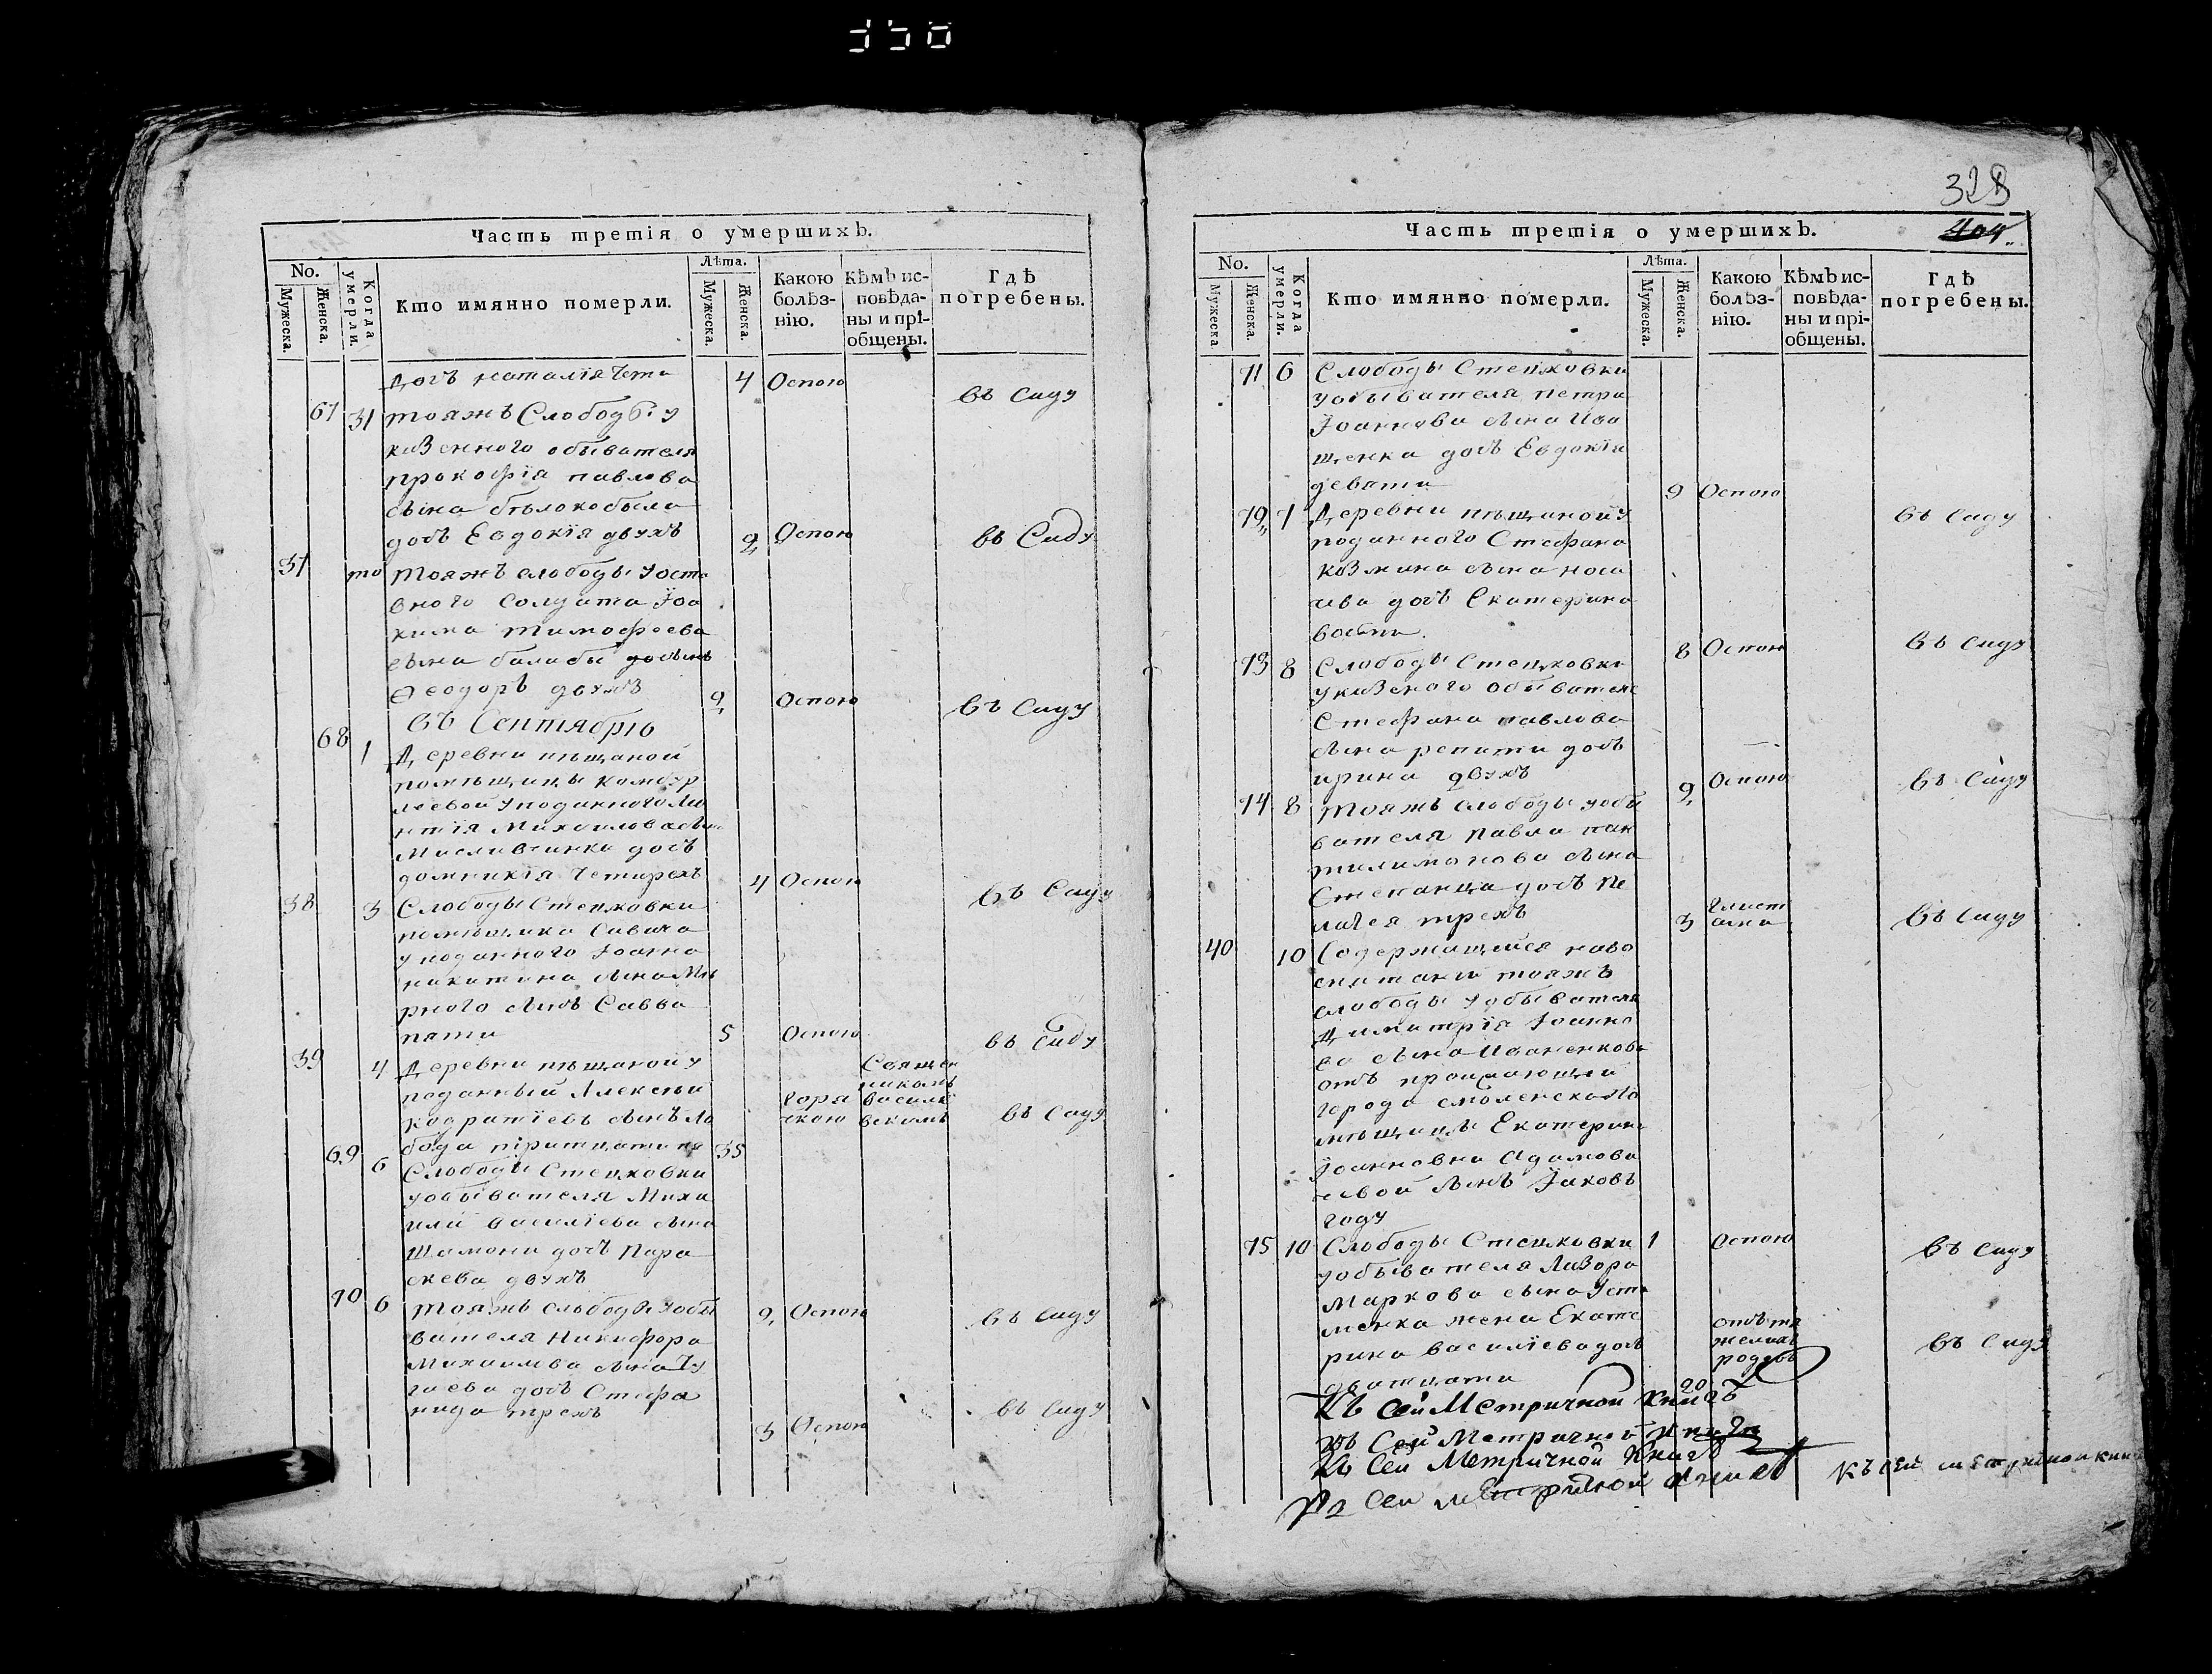 350
Часть третія о умершихъ.
No.
Мужеска.
Женска.
Когда умерли.
Кто имянно померли.
Лѣта.
Мужеска.
Женска.
Какою болѣз-
нію.
Кѣмъ ис-
повѣда-
ны и прі-
общены.
Гдѣ
погребены.
дочь наталія чети 4 Оспою въ саду
67 31 тояжъ Слободы у
казенного обывателя
прокофія павлова
сына бѣлокобыла
дочь Евдокія двухъ 2 Оспою въ Саду
37 то тояжъ слободы Уста
вного Солдата Іоа
кима тимофеева
сына балабы
Ѳеодоръ двухъ 2 Оспою въ саду
въ Сентябрѣ
68 1 Деревни пѣщаной
помѣщицы Камбур
леевой уподанного Ле
нтія Михайлова сына
Масливчинка дочь
домникія четирехъ 4 Оспою въ Саду
38 3 Слободы Степковки
помѣщика Савича
уподанного Іоанна
никитина сына Ми
рного сынъ Савва
пяти 5 Оспою въ саду
39 4 Деревни пѣщаной у
поданный Алексѣй
кодратіевъ сынъ Ло
бода тритцати пя 35
горя
чкою
Священ
никомъ
василі
евскимъ
въ саду
69 6 Слободы Степковки
уобывателя Миха
ила василіева сына
Шамони дочь Пара
скева двухъ 2 Оспою въ саду
70 6 тояжъ слободы уобы
вателя Никифора
Михаилова сына Ту
гаева дочь Стефа
нида трехъ 3 Оспою въ саду
328
404
Часть третія о умершихъ.
No.
Мужеска.
Женска.
Когда умерли.
Кто имянно померли.
Лѣта.
Мужеска.
Женска.
Какою болѣз-
нію.
Кѣмъ ис-
повѣда-
ны и прі-
общены.
Гдѣ
погребены.
71 6 Слободы Степковки
уобывателя петра
Іоаннова сына Ива
щенка дочь Евдокія
девяти 9 Оспою въ саду
72 7 Деревни пѣщаной у
поданного Стефана
козмина сына носа
чева дочь Екатерина
восми 8 Оспою въ саду
73 8 Слободы Степковки
указеного обывателя
Стефана павлова
сына репити дочь
ирина двухъ 2 Оспою въ саду
74 8 тояжъ слободы уобы
вателя павла пан
тилимонова сына
Степанца дочь Пе
лагея трехъ 3 глист
ами въ саду
40 10 Содержащийся наво
спитаніи тояжъ
слободы уобывателя
Димитрія Іоанно
ва сына Иваненкова
отъ проижающей
города смоленска по
мѣщицы Екатерины
Іоанновны Адамови
чевой сынъ Іаковъ
году 1 Оспою въ саду
75 10 Слободы Степковки
уобывателя Лазора
Маркова сына Усти
менка жена Екате
рина василіева дочь
дватцати 20
отъ тя
желихъ
родовъ
въ саду
Къ Сей Метричной Книгѣ
Къ Сей Метричной книгѣ
Къ Сей Метричной Книгѣ
Къ Сей метричной книгѣ
Къ сей метричной книг